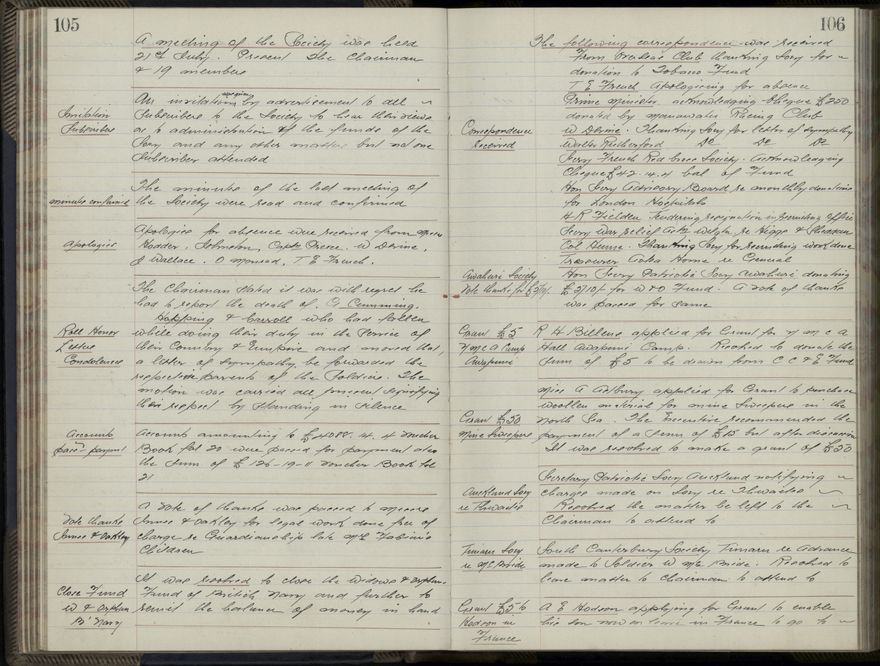 105
A meeting of the Society was held
21st July. Present The Chairman
& 19 members
Invitation
Subscribers
An invitation was given by advertisement to all
Subscribers to the Society to hear their views
as to administration of the funds of the
Socy and any other matters but no one
Subscriber attended
minutes confirmed
The minutes of the last meeting of
the Society were read and confirmed
Apologies
Apologies for absence were received from Messrs
Hodder, Johnston, Capt Preece. W Devine,
J Wallace. O Monrad, T E French.
The Chairman stated it was with regret he
had to report the death of G Cumming.
Hopping & Carroll who had fallen
Roll Honor
Letters
Condolences
while doing their duty in the Service of
their Country & Empire and moved that
a letter of sympathy be forwarded the
respective parents of the Soldiers. The
motion was carried all present signifying
their respect by standing in silence
Accounts
pass'd payment
Accounts amounting to £4088.4.4 Voucher
Book fol 20 were passed for payment also
the sum of £126-19-11 Voucher Book fol
21
Vote thanks
Innes & Oakley
A Vote of thanks was passed to Messrs
Innes & Oakley for legal work done free of
charge re Guardianship late Mrs Fabian's
Children
Close Fund
W & Orphan
B' Navy
It was resolved to close the widows & orphans
Fund of British Navy and further to
remit the balance of money in hand
106
The following correspondence was received
From Orakei Club thanking Socy for
donation to Tobacco Fund
T E French apologising for absence
Prime Minister acknowledging cheque £250
donated by Manawatu Racing Club
Correspondence
received
W Devine. Thanking Socy for letter of sympathy
Walter Rutherford Do Do Do
Socy French Red Cross Society. acknowledging
Cheque £42.4.4 bal of Fund
Hon Socy Advisory Board re monthly donations
for London Hospitals
H R Fielden tendering resignation in recruiting office
Socy War relief Assn Welgtn. re Hipp &
Col Hume. Thanking Socy for recruiting work done
Treasurer Cotes Home re General
Awahuri Society
Vote thanks for £5/10/-
Hon Secry Patriotic Socy Awahuri donating
£5/10/- for W & O Fund. A vote of thanks
was passed for same
Grant £5
Y M C A Camp
Awapuni
R H Billens applied for Grant for Y M C A
Hall Awapuni Camp. Resolved to donate the
sum of £5 to be drawn from C C & E Fund
Grant £20
Mine Sweepers
Miss A Astbury applied for Grant to purchase
woollen material for mine sweepers in the
North Sea. The Executive recommended the
payment of a sum of £15 but after discussion
It was resolved to make a grant of £20
Auckland Socy
re Thwaites
Secretary Patriotic Socy Auckland notifying
charges made on Socy re Thwaites
Resolved the matter be left to the
Chairman to attend to
Timaru Socy
re McBride
South Canterbury Society Timaru re Advance
made to Soldier W McBride. Resolved to
leave matter to Chairman to attend to
Grant £5 to
Hodson in
France
A E Hodson applying for Grant to enable
his son now on leave in France to go to